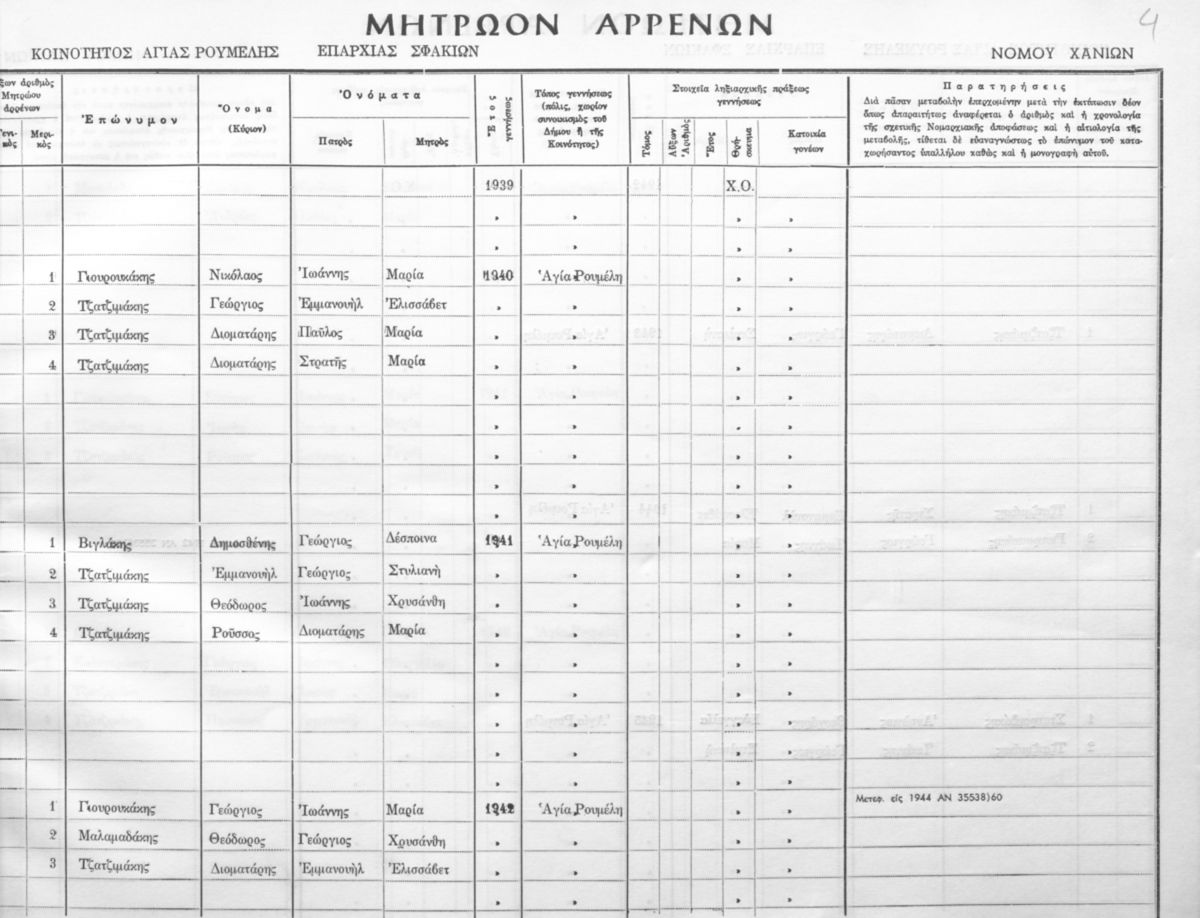 ΜΗΤΡΩΟΝ ΑΡΡΕΝΩΝ
4
ΚΟΙΝΟΤΗΤΟΣ ΑΓΙΑΣ ΡΟΥΜΕΛΗΣ ΕΠΑΡΧΙΑΣ ΣΦΑΚΙΩΝ ΝΟΜΟΥ ΧΑΝΙΩΝ
ξων ἀριθμὸς
Μητρώου
ἀρρένων
Γενι-
κὸς
Μερι-
κὸς
Ἐπώνυμον
Ὄνομα
(Κύριον)
Ὀνόματα
Πατρὸς
Μητρὸς
Ἔτος
γεννήσεως
Τόπος γεννήσεως
(πόλις, χωρίον
συνοικισμὸς τοῦ
Δήμου ἢ τῆς
Κοινότητος)
Στοιχεῖα ληξιαρχικῆς πράξεως
γεννήσεως
Τόμος
Αὔξων
Ἀριθμὸς
Ἔτος
Θρή-
σκευμα
Κατοικία
γονέων
Παρατηρήσεις
Διὰ πᾶσαν μεταβολὴν ἐπερχομένην μετὰ τὴν ἐκτύπωσιν δέον
ὅπως ἀπαραιτήτως ἀναφέρεται ὁ ἀριθμὸς καὶ ἡ χρονολογία
τῆς σχετικῆς Νομαρχιακῆς ἀποφάσεως καὶ ἡ αἰτιολογία τῆς
μεταβολῆς, τίθεται δὲ εὐαναγνώστως τὸ ἐπώνυμον τοῦ κατα-
χωρήσαντος ὑπαλλήλου καθὼς καὶ ἡ μονογραφὴ αὐτοῦ.
1939 Χ.Ο.
» » » »
» » » »
1 Γιουρουκάκης Νικόλαος Ἰωάννης Μαρία 1940 Ἁγία Ρουμέλη » »
2 Τζατζιμάκης Γεώργιος Ἐμμανουὴλ Ἐλισσάβετ » » » »
3 Τζατζιμάκης Διοματάρης Παῦλος Μαρία » » » »
4 Τζατζιμάκης Διοματάρης Στρατῆς Μαρία » » » »
» » » »
» » » »
» » » »
» » » »
» » » »
1 Βιγλάκης Δημοσθένης Γεώργιος Δέσποινα 1941 Ἁγία Ρουμέλη » »
2 Τζατζιμάκης Ἐμμανουὴλ Γεώργιος Στυλιανὴ » » » »
3 Τζατζιμάκης Θεόδωρος Ἰωάννης Χρυσάνθη » » » »
4 Τζατζιμάκης Ροῦσσος Διοματάρης Μαρία » » » »
» » » »
» » » »
» » » »
» » » »
» » » »
1 Γιουρουκάκης Γεώργιος Ἰωάννης Μαρία 1942 Ἁγία Ρουμέλη » » Μετεφ. εἰς 1944 ΑΝ 35538)60
2 Μαλαμαδάκης Θεόδωρος Γεώργιος Χρυσάνθη » » » »
3 Τζατζιμάκης Διοματάρης Ἐμμανουὴλ Ἐλισσάβετ » » » »
» » » »